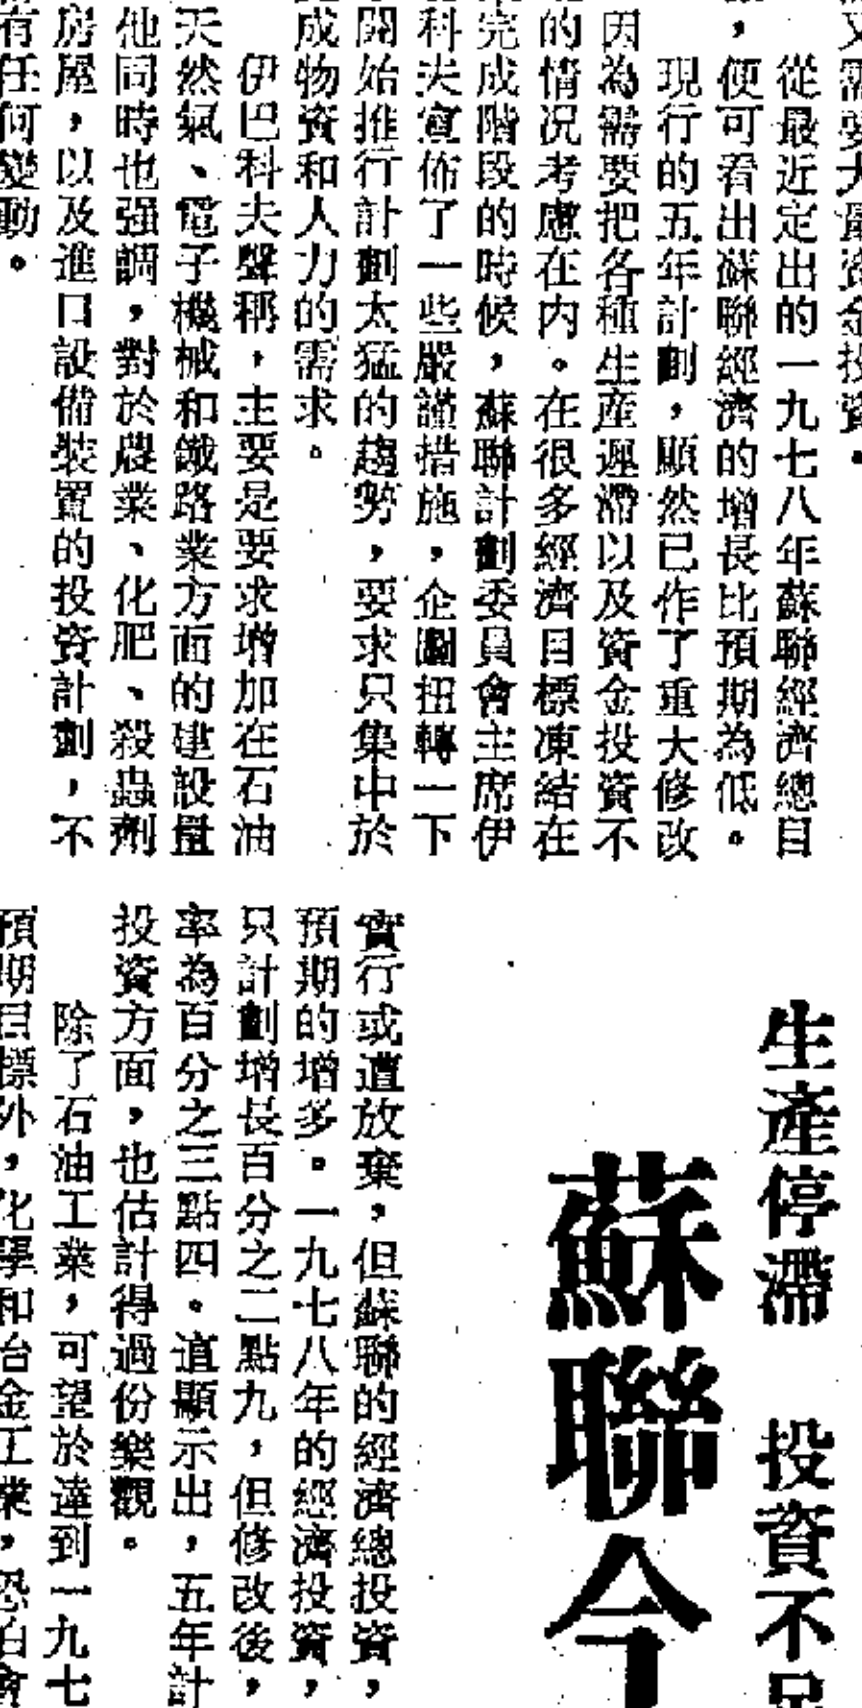 又需要大量資金投資。
從最近定出的一九七八年蘇聯經濟總目
，便可看出蘇聯經濟的增長比預期為低。
現行的五年計劃，顯然已作了重大修改
因為需要把各種生產遲滯以及資金投資不
的情況考慮在內。在很多經濟目標凍結在
完成階段的時候，蘇聯計劃委員會主席伊
科夫宣佈了一些嚴謹措施，企圖扭轉一下
開始推行計劃太猛的趨勢，要求只集中於
成物資和人力的需求。
伊巴科夫聲稱，主要是要求增加在石油
天然氣、電子機械和鐵路業方面的建設量
他同時也強調，對於農業、化肥、殺蟲劑
房屋，以及進口設備裝置的投資計劃，不
有任何變動。
生產停滯　投資不足
蘇聯今
實行或遭放棄，但蘇聯的經濟總投資，
預期的增多。一九七八年的經濟投資，
只計劃增長百分之二點九，但修改後，
率為百分之三點四。這顯示出，五年計
投資方面，也估計得過份樂觀。
除了石油工業，可望於達到一九七
預期目標外，化學和冶金工業，恐怕會